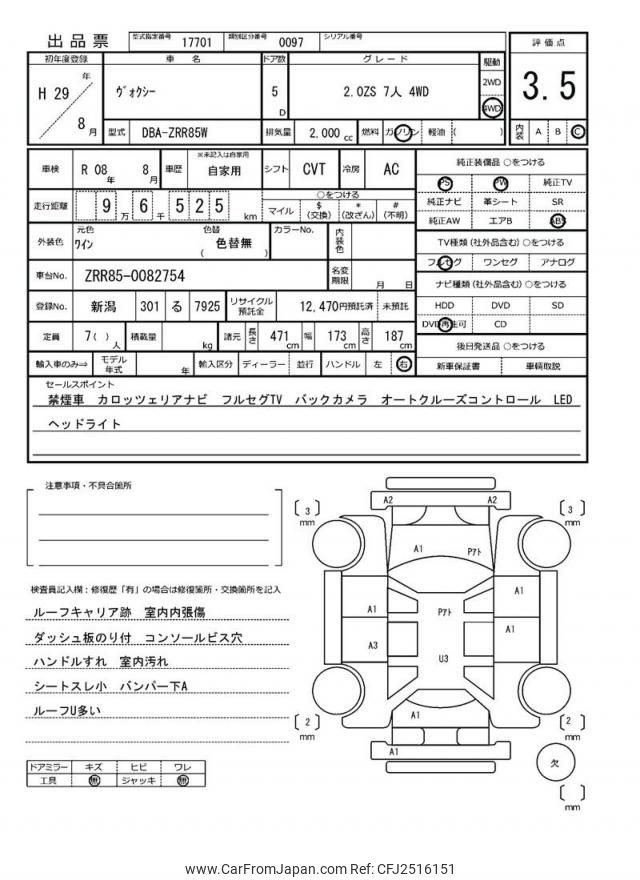 出品票 型式指定番号 17701 類別区分番号 0097 シリアル番号
評価点
3.5
内装 A B C
初年度登録 車名 ドア数 グレード 駆動
H 29 年 8 月
ヴォクシー 5 D 2.0ZS 7人 4WD 2WD 4WD
型式 DBA-ZRR85W 排気量 2,000 cc 燃料 ガソリン 軽油 ( )
車検 R 08 年 8 月 車歴 ※未記入は自家用 自家用 シフト CVT 冷房 AC
走行距離 9 万 6 千 5 2 5 km ○をつける
マイル $ (交換) * (改ざん) # (不明)
外装色 元色 ワイン 色替 色替無 ( ) カラーNo. 内装色
車台No. ZRR85-0082754 名変期限 月 日
登録No. 新潟 301 る 7925 リサイクル預託金 12,470円預託済 未預託
定員 7( ) 人 積載量 kg 諸元 長さ 471 cm 幅 173 cm 高さ 187 cm
輸入車のみ⇒ モデル年式 年 輸入区分 ディーラー 並行 ハンドル 左 右
純正装備品 ○をつける
PS PW 純正TV
純正ナビ 革シート SR
純正AW エアB ABS
TV種類(社外品含む)○をつける
フルセグ ワンセグ アナログ
ナビ種類(社外品含む)○をつける
HDD DVD SD
DVD再生可 CD
後日発送品 ○をつける
新車保証書 車輌取説
セールスポイント
禁煙車 カロッツェリアナビ フルセグTV バックカメラ オートクルーズコントロール LED
ヘッドライト
注意事項・不具合箇所
検査員記入欄：修復歴「有」の場合は修復箇所・交換箇所を記入
ルーフキャリア跡 室内内張傷
ダッシュ板のり付 コンソールビス穴
ハンドルすれ 室内汚れ
シートスレ小 バンパー下A
ルーフU多い
ドアミラー キズ ヒビ ワレ
工具 無 ジャッキ 無
A2 A2
3 mm 3 mm
A1 Pｱﾄ
A1 Pｱﾄ A1
A3 U3 A1
2 mm 2 mm
A1
A1
欠
mm
www.CarFromJapan.com Ref: CFJ2516151